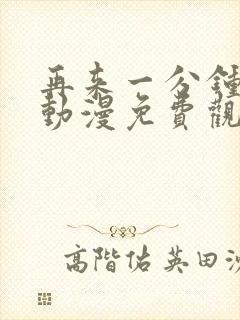 再来一分鍾
動漫免費觀
高階佑英田